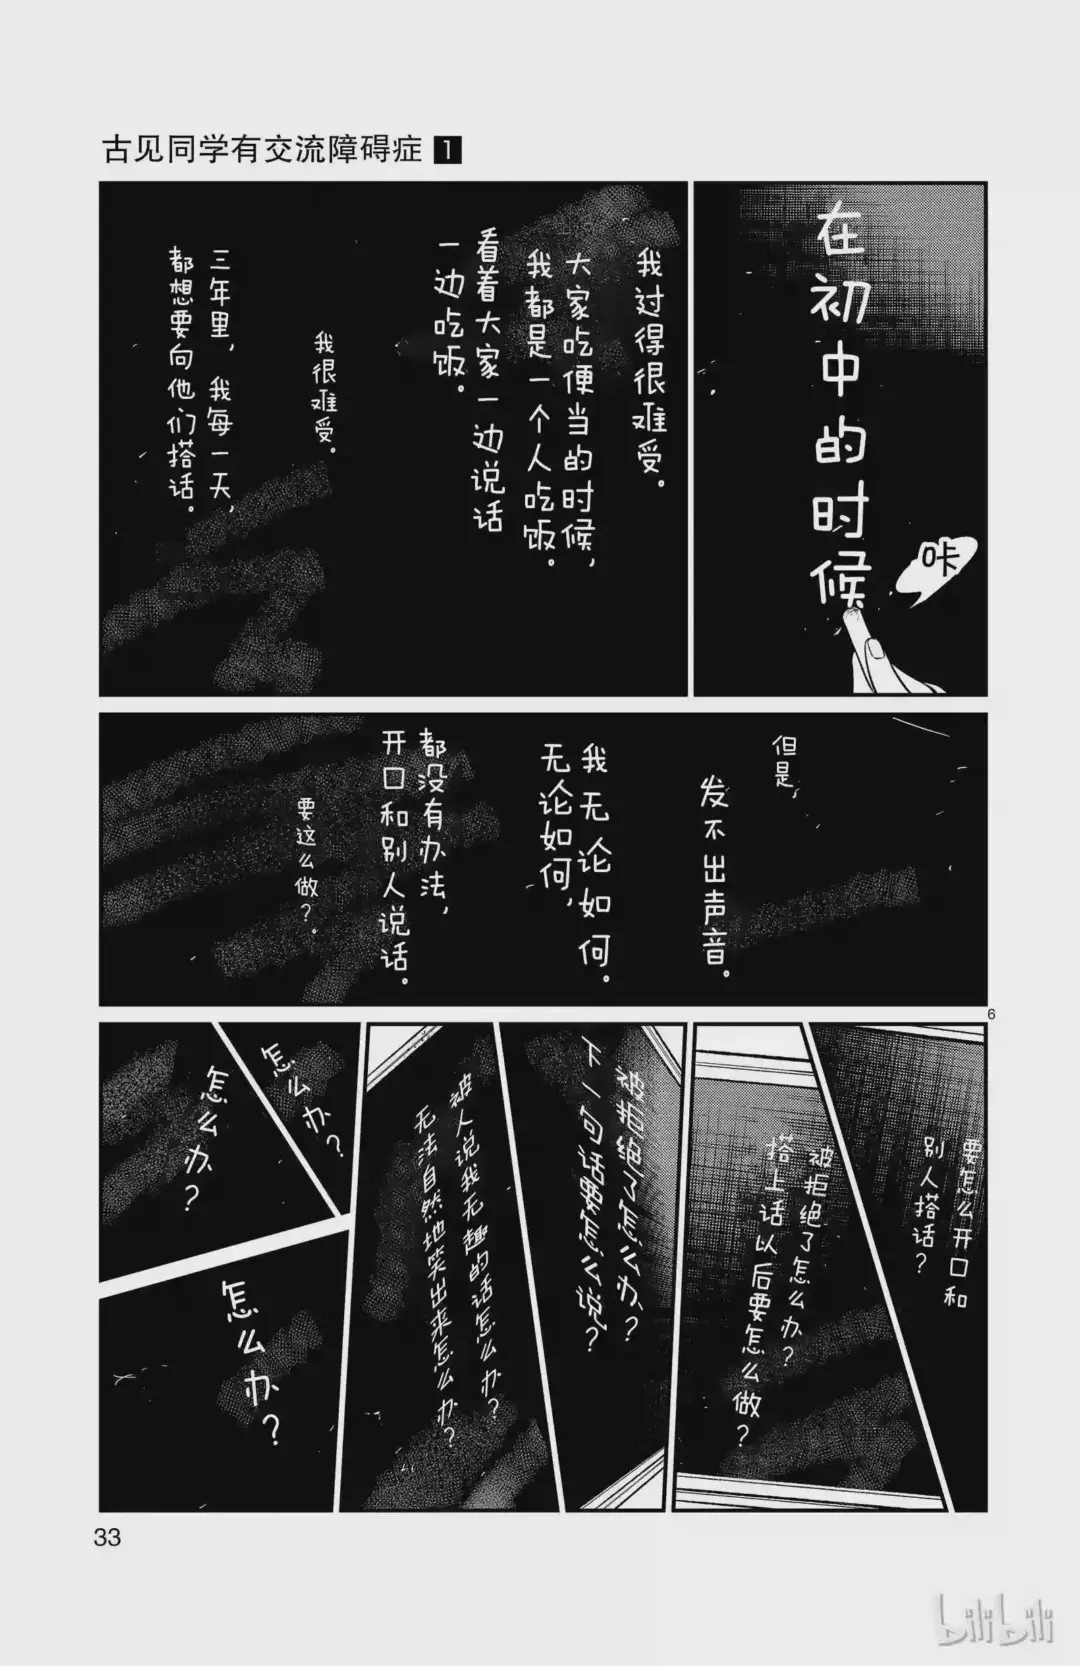 古见同学有交流障碍症 1
在初中的时候
咔
我过得很难受。
大家吃便当的时候,
我都是一个人吃饭。
看着大家一边说话
一边吃饭。
我很难受。
三年里,我每一天,
都想要向他们搭话。
但是,
发不出声音。
我无论如何。
无论如何,
都没有办法,
开口和别人说话。
要这么做?。
6
要怎么开口和
别人搭话?
被拒绝了怎么办?
搭上话以后要怎么做?
被拒绝了怎么办?
下一句话要怎么说?
被人说我无趣的话怎么办?
无法自然地笑出来怎么办?
怎么办?
怎么办?
怎么办?
33
bilibili